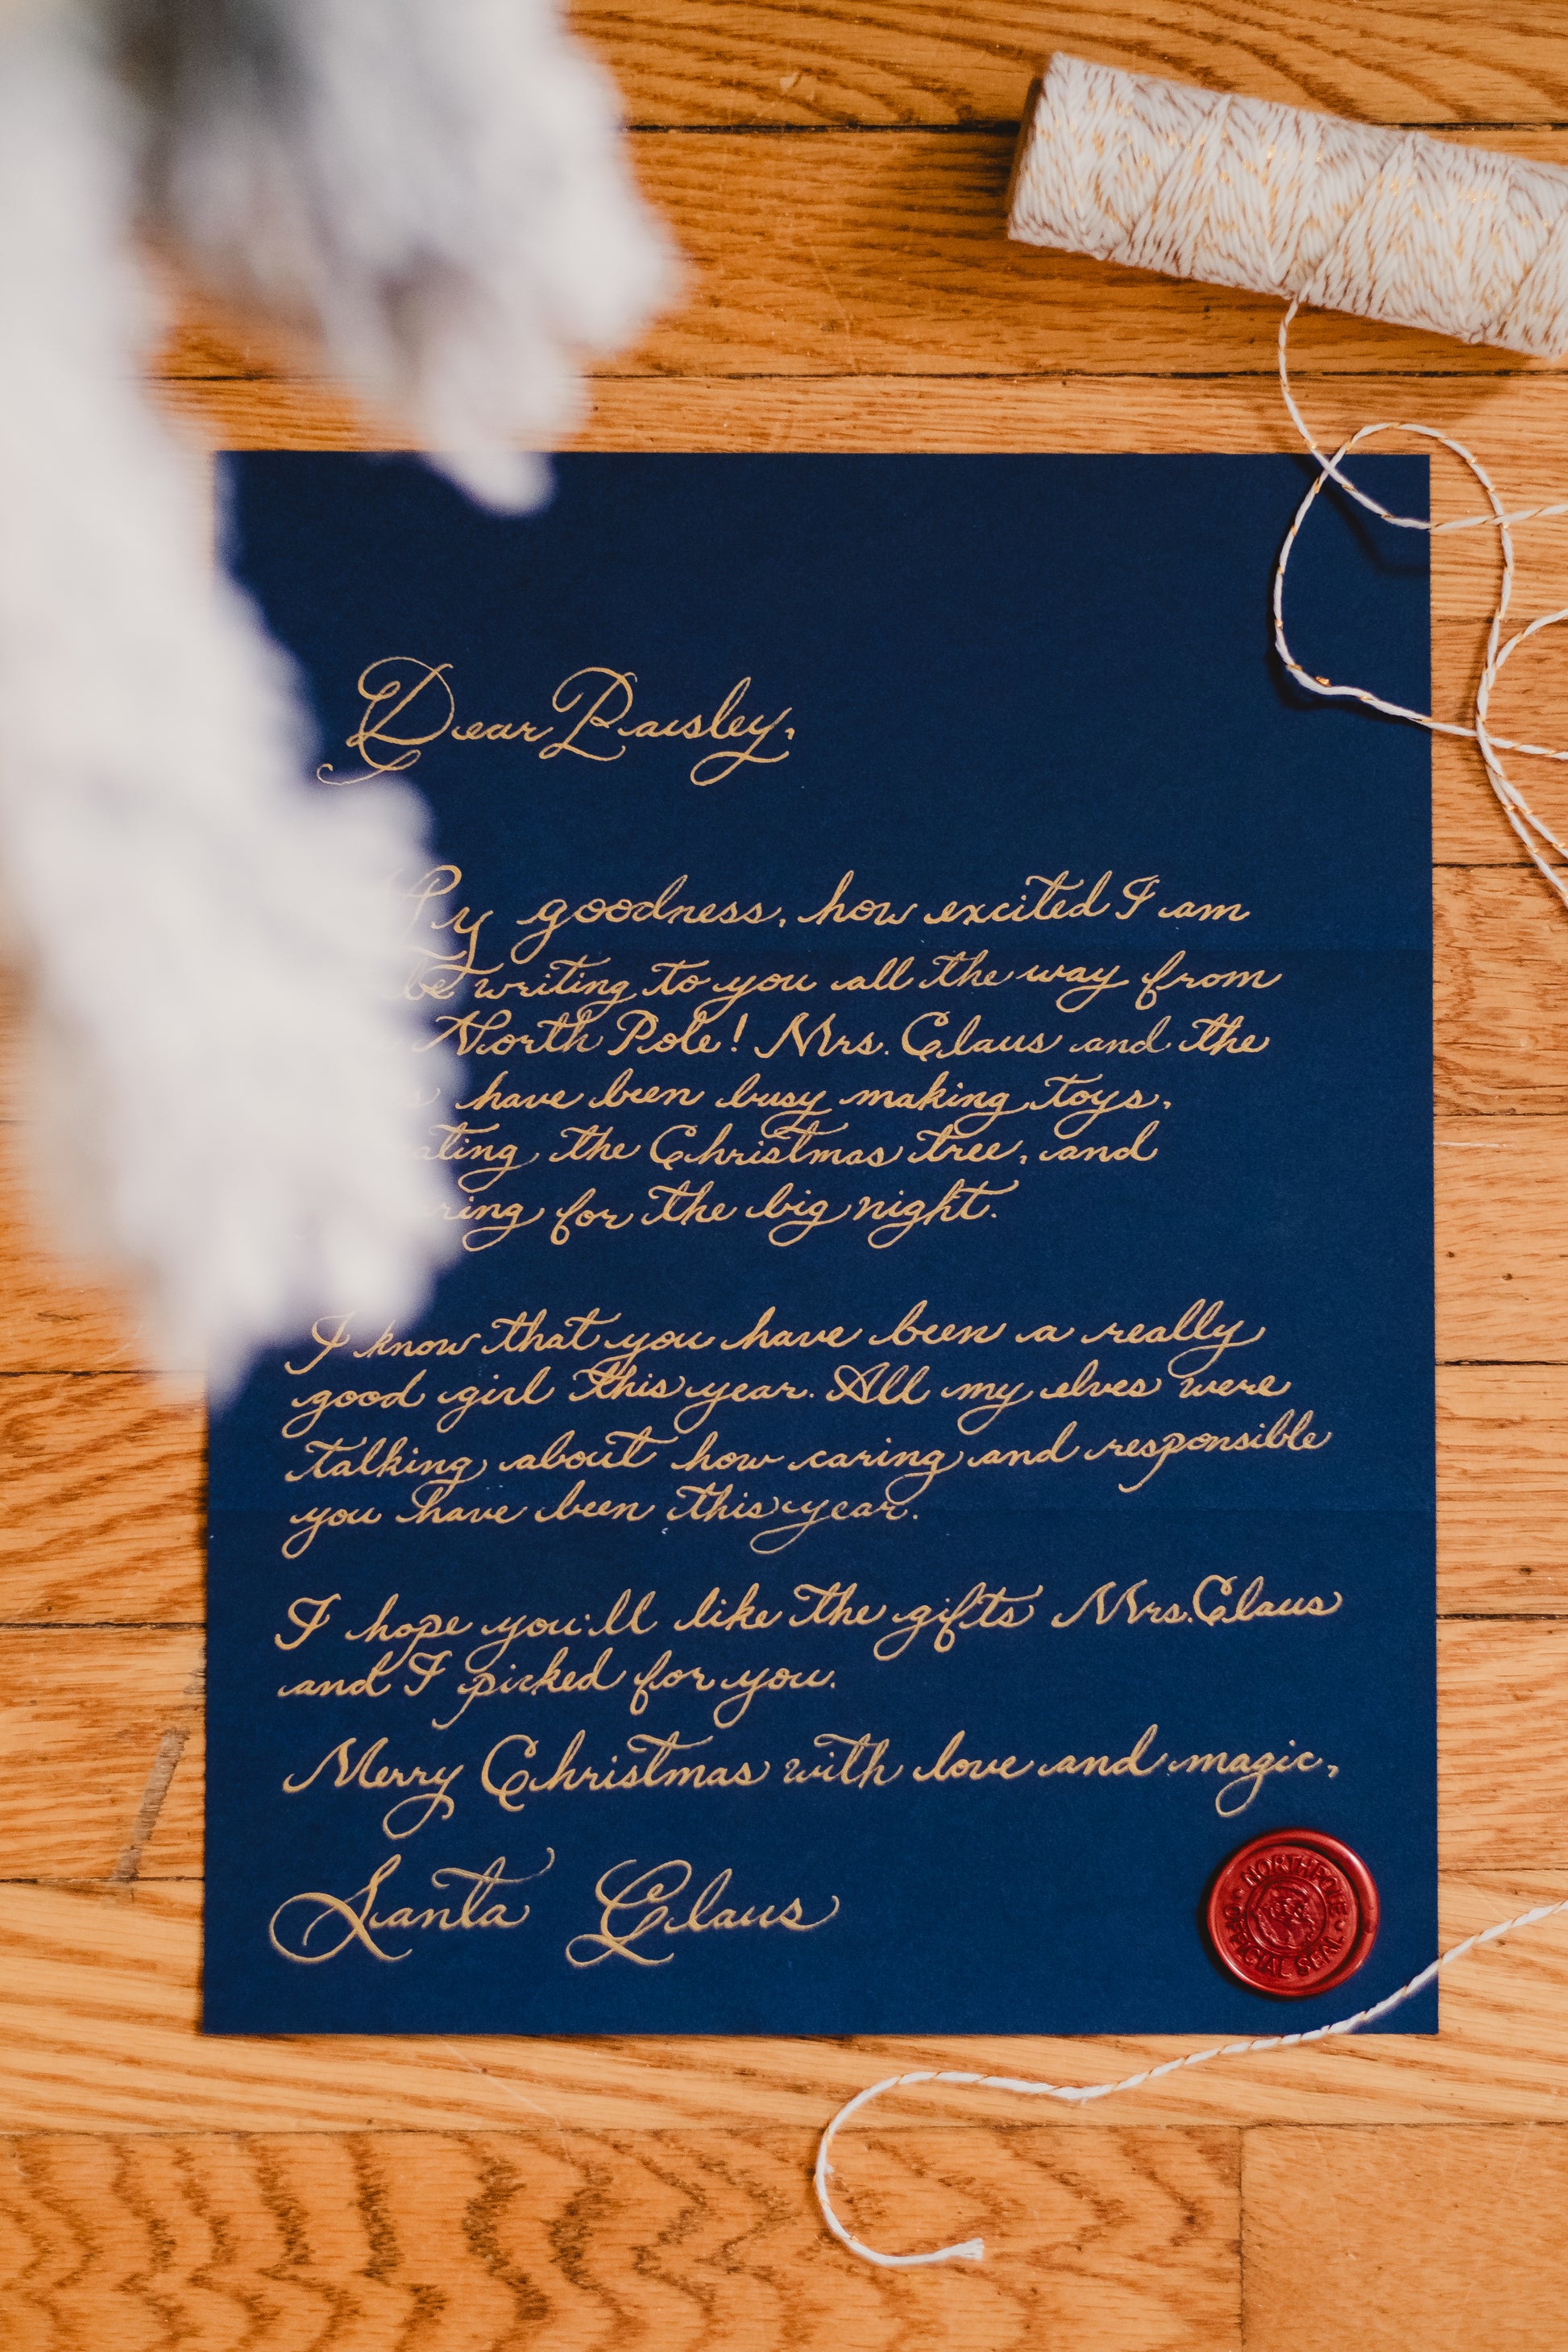 Dear Paisley,
goodness, how excited I am
be writing to you all the way from
North Pole! Mrs. Claus and the
have been busy making toys,
the Christmas tree, and
for the big night.
I know that you have been a really
good girl this year. All my elves were
talking about how caring and responsible
you have been this year.
I hope you'll like the gifts Mrs. Claus
and I picked for you.
Merry Christmas with love and magic,
Santa Claus
NORTH POLE
OFFICIAL SEAL